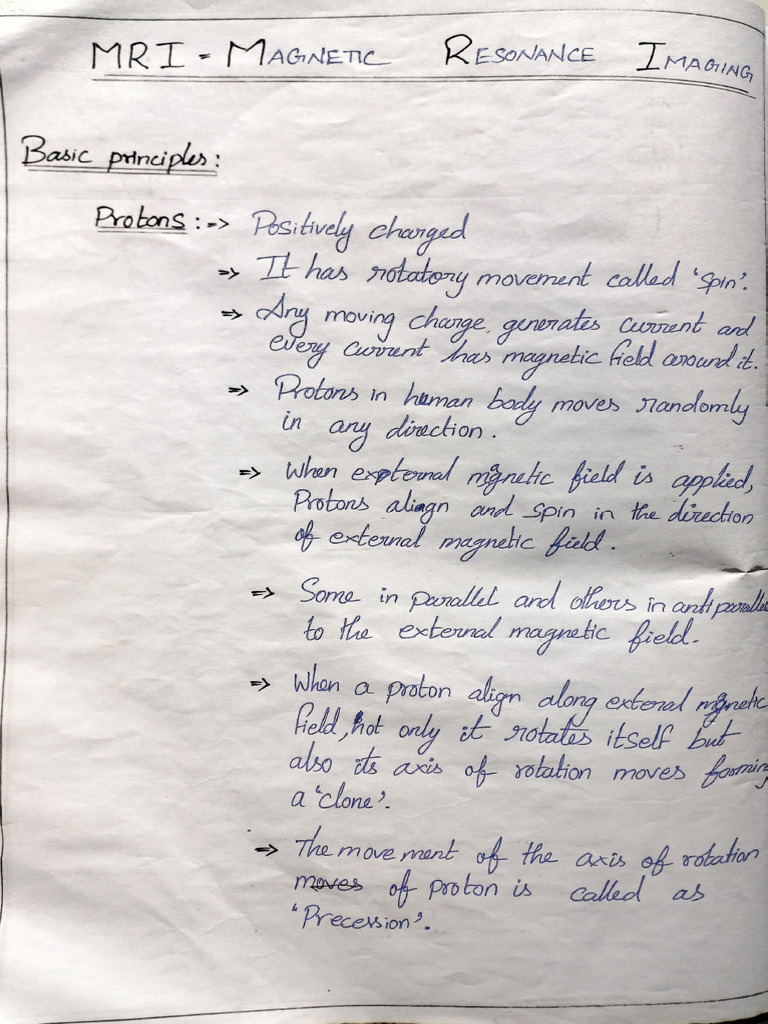 MRI = MAGNETIC RESONANCE IMAGING
Basic principles:
Protons :=> Positively charged
=> It has rotatory movement called 'spin'.
=> Any moving charge generates current and
every current has magnetic field around it.
=> Protons in human body moves randomly
in any direction.
=> When external magnetic field is applied,
Protons aliagn and spin in the direction
of external magnetic field.
=> Some in parallel and others in antiparallel
to the external magnetic field.
=> When a proton align along exteral magnetic
field, not only it rotates itself but
also its axis of rotation moves forming
a 'clone'.
=> The movement of the axis of rotation
moves of proton is called as
'Precession'.